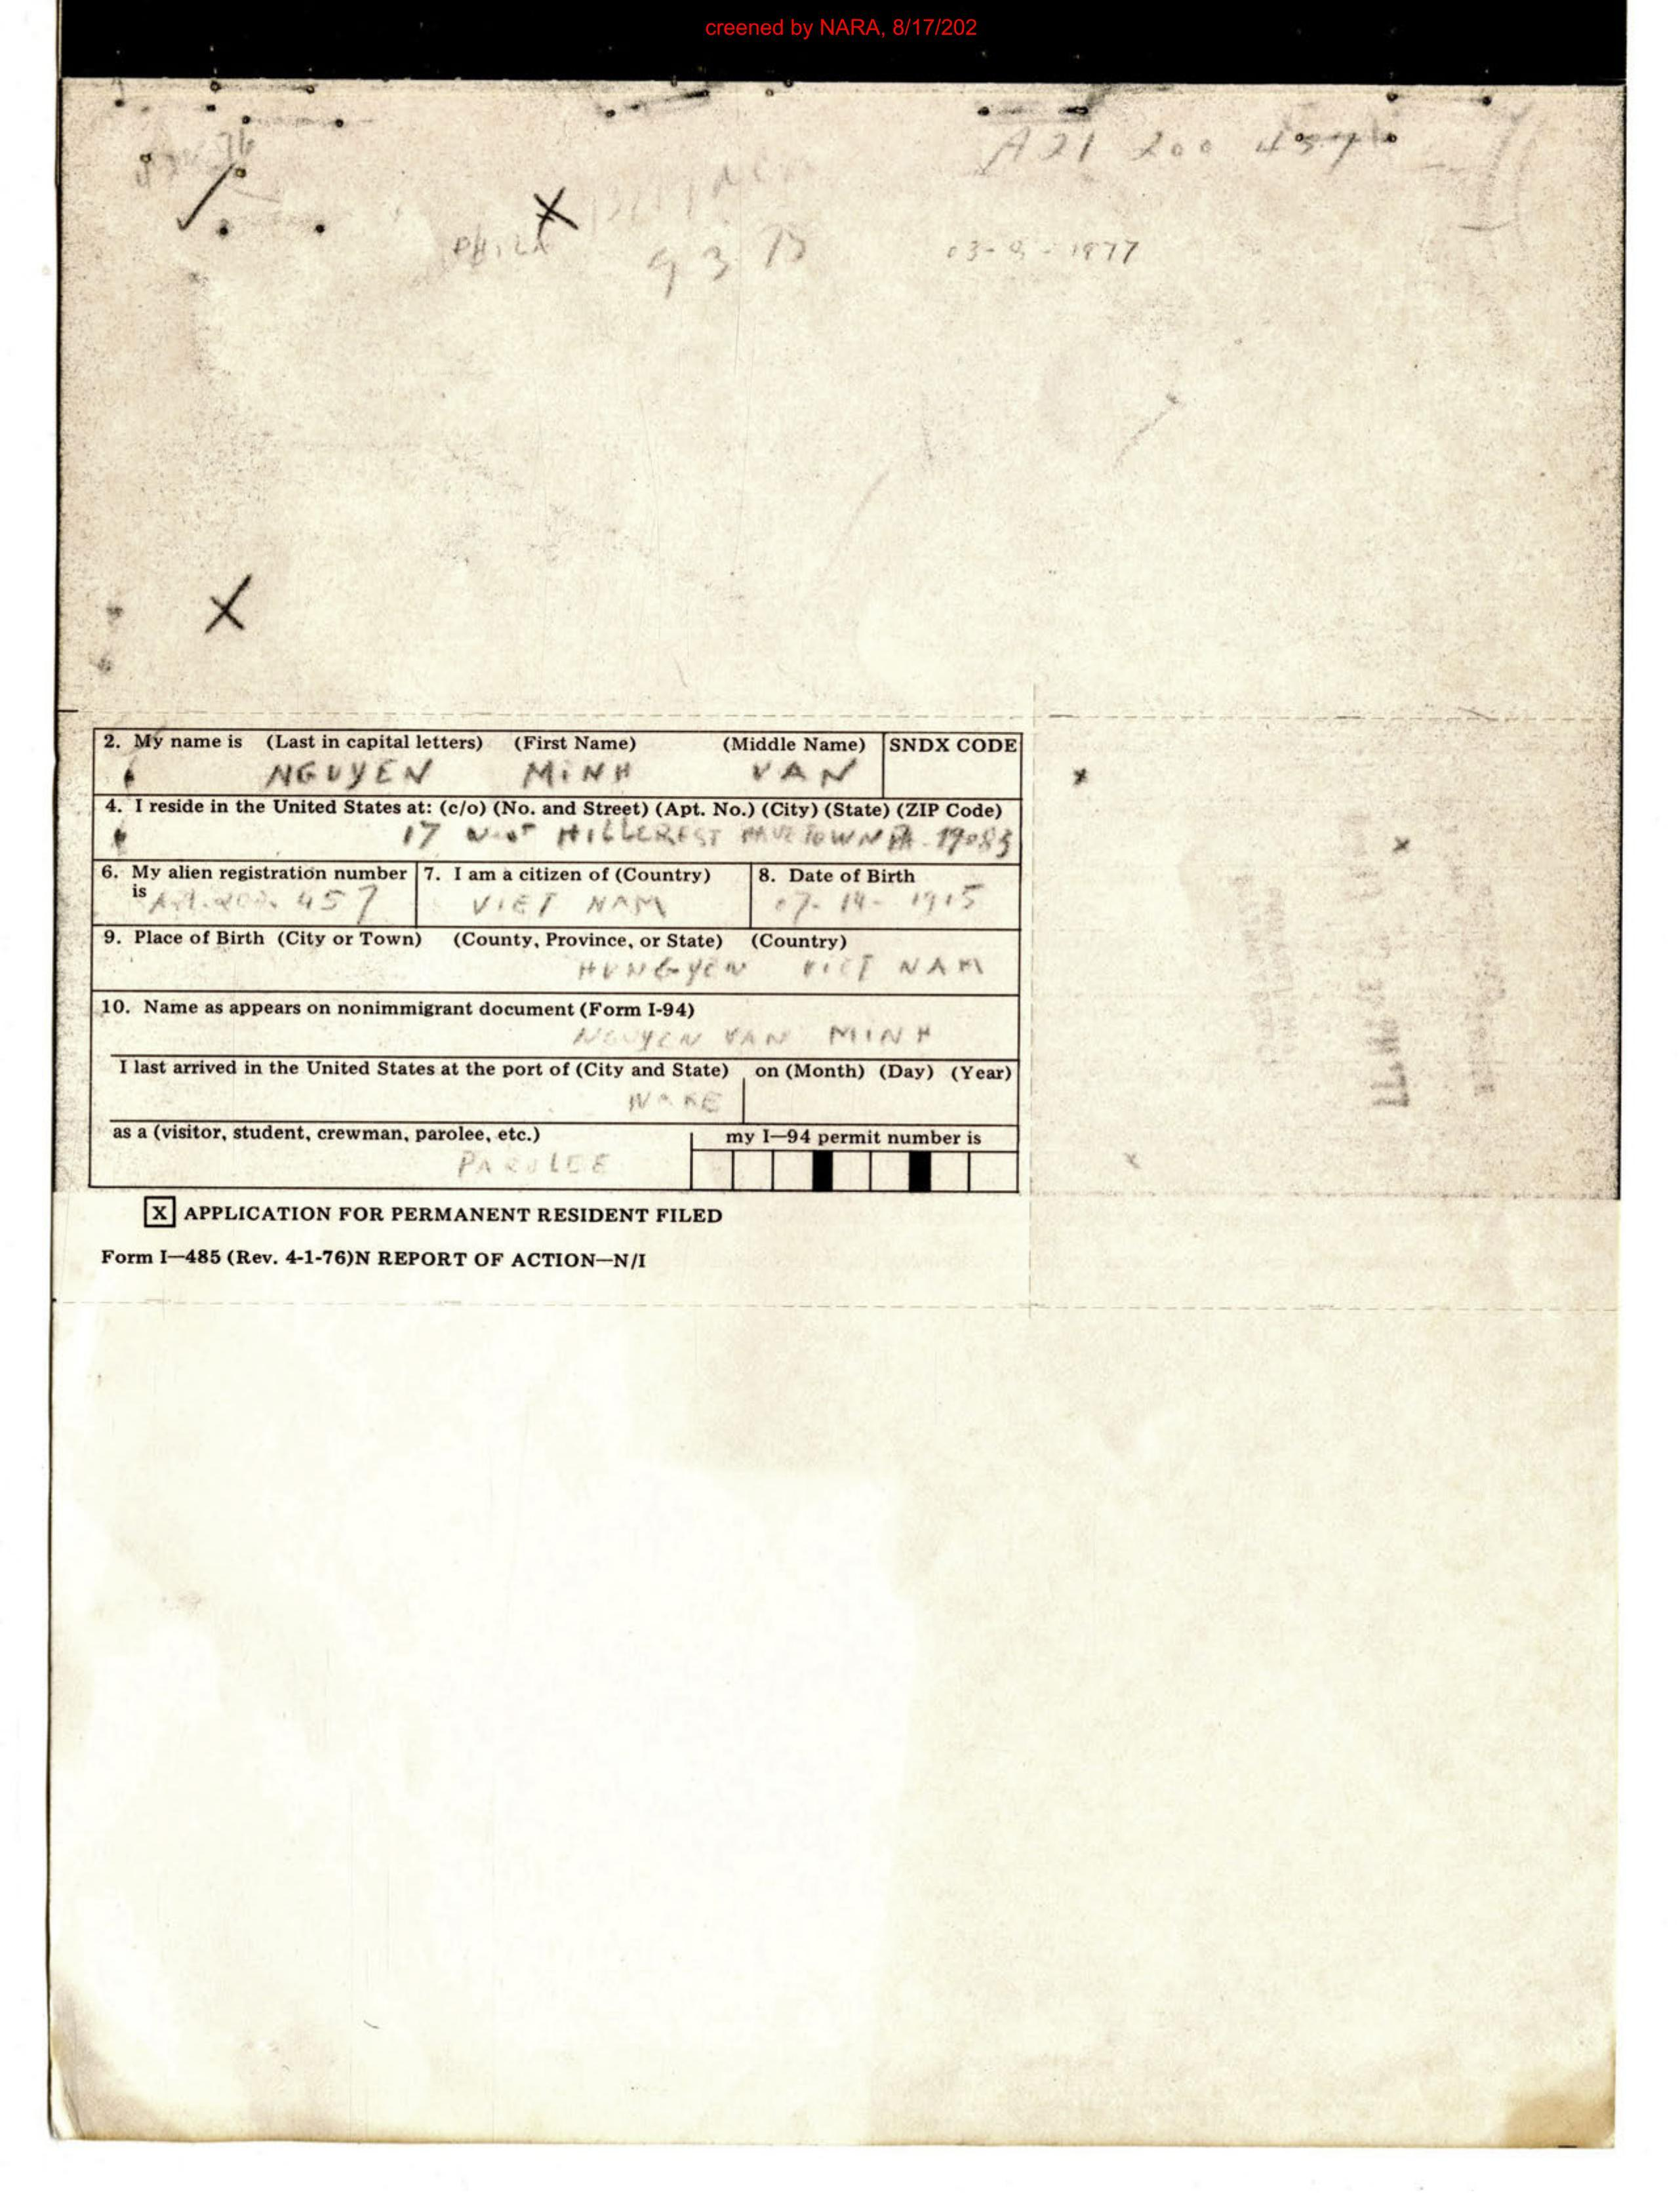 creened by NARA, 8/17/202
A21 200 457
PHILA
9 3 75
03- - 1977
2. My name is (Last in capital letters) (First Name) (Middle Name) SNDX CODE
NGUYEN MINH VAN
4. I reside in the United States at: (c/o) (No. and Street) (Apt. No.) (City) (State) (ZIP Code)
17 West HILLCREST HAVETOWN PA. 19083
6. My alien registration number is 7. I am a citizen of (Country) 8. Date of Birth
457 VIET NAM 07- 14- 1915
9. Place of Birth (City or Town) (County, Province, or State) (Country)
HUNGYEN VIET NAM
10. Name as appears on nonimmigrant document (Form I-94)
NGUYEN VAN MINH
I last arrived in the United States at the port of (City and State) on (Month) (Day) (Year)
WAKE
as a (visitor, student, crewman, parolee, etc.) my I-94 permit number is
PAROLEE
X APPLICATION FOR PERMANENT RESIDENT FILED
Form I-485 (Rev. 4-1-76)N REPORT OF ACTION-N/I